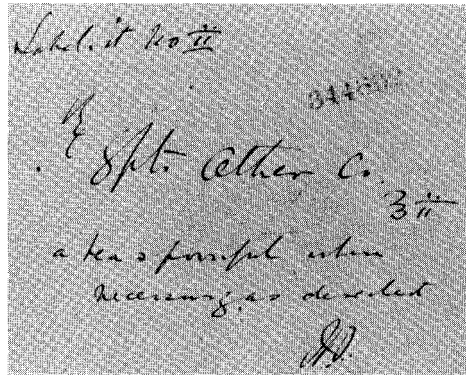 Label it No ii
℞
Spts. Aether Co.
ʒ ii
a teaspoonful when
necessary as directed